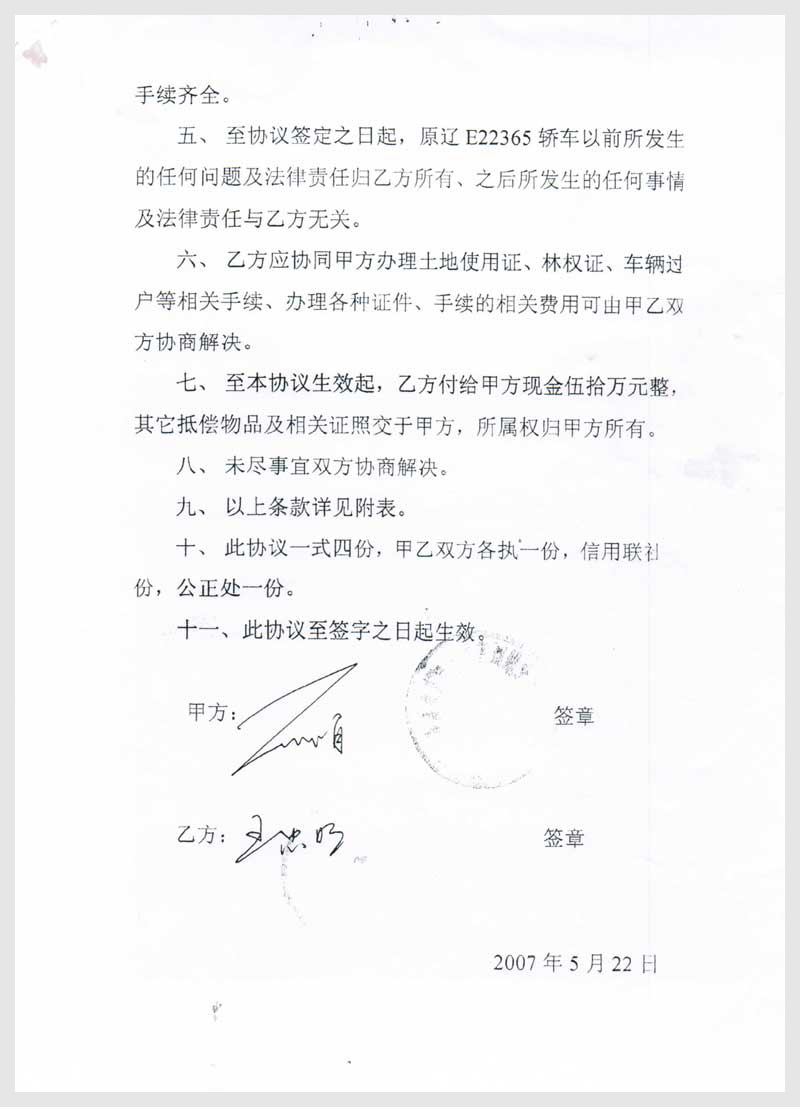 手续齐全。
五、 至协议签定之日起，原辽 E22365 轿车以前所发生
的任何问题及法律责任归乙方所有、之后所发生的任何事情
及法律责任与乙方无关。
六、 乙方应协同甲方办理土地使用证、林权证、车辆过
户等相关手续、办理各种证件、手续的相关费用可由甲乙双
方协商解决。
七、 至本协议生效起，乙方付给甲方现金伍拾万元整，
其它抵偿物品及相关证照交于甲方，所属权归甲方所有。
八、 未尽事宜双方协商解决。
九、 以上条款详见附表。
十、 此协议一式四份，甲乙双方各执一份，信用联社
份，公正处一份。
十一、此协议至签字之日起生效。
甲方： 签章
乙方：王忠明 签章
2007 年 5 月 22 日